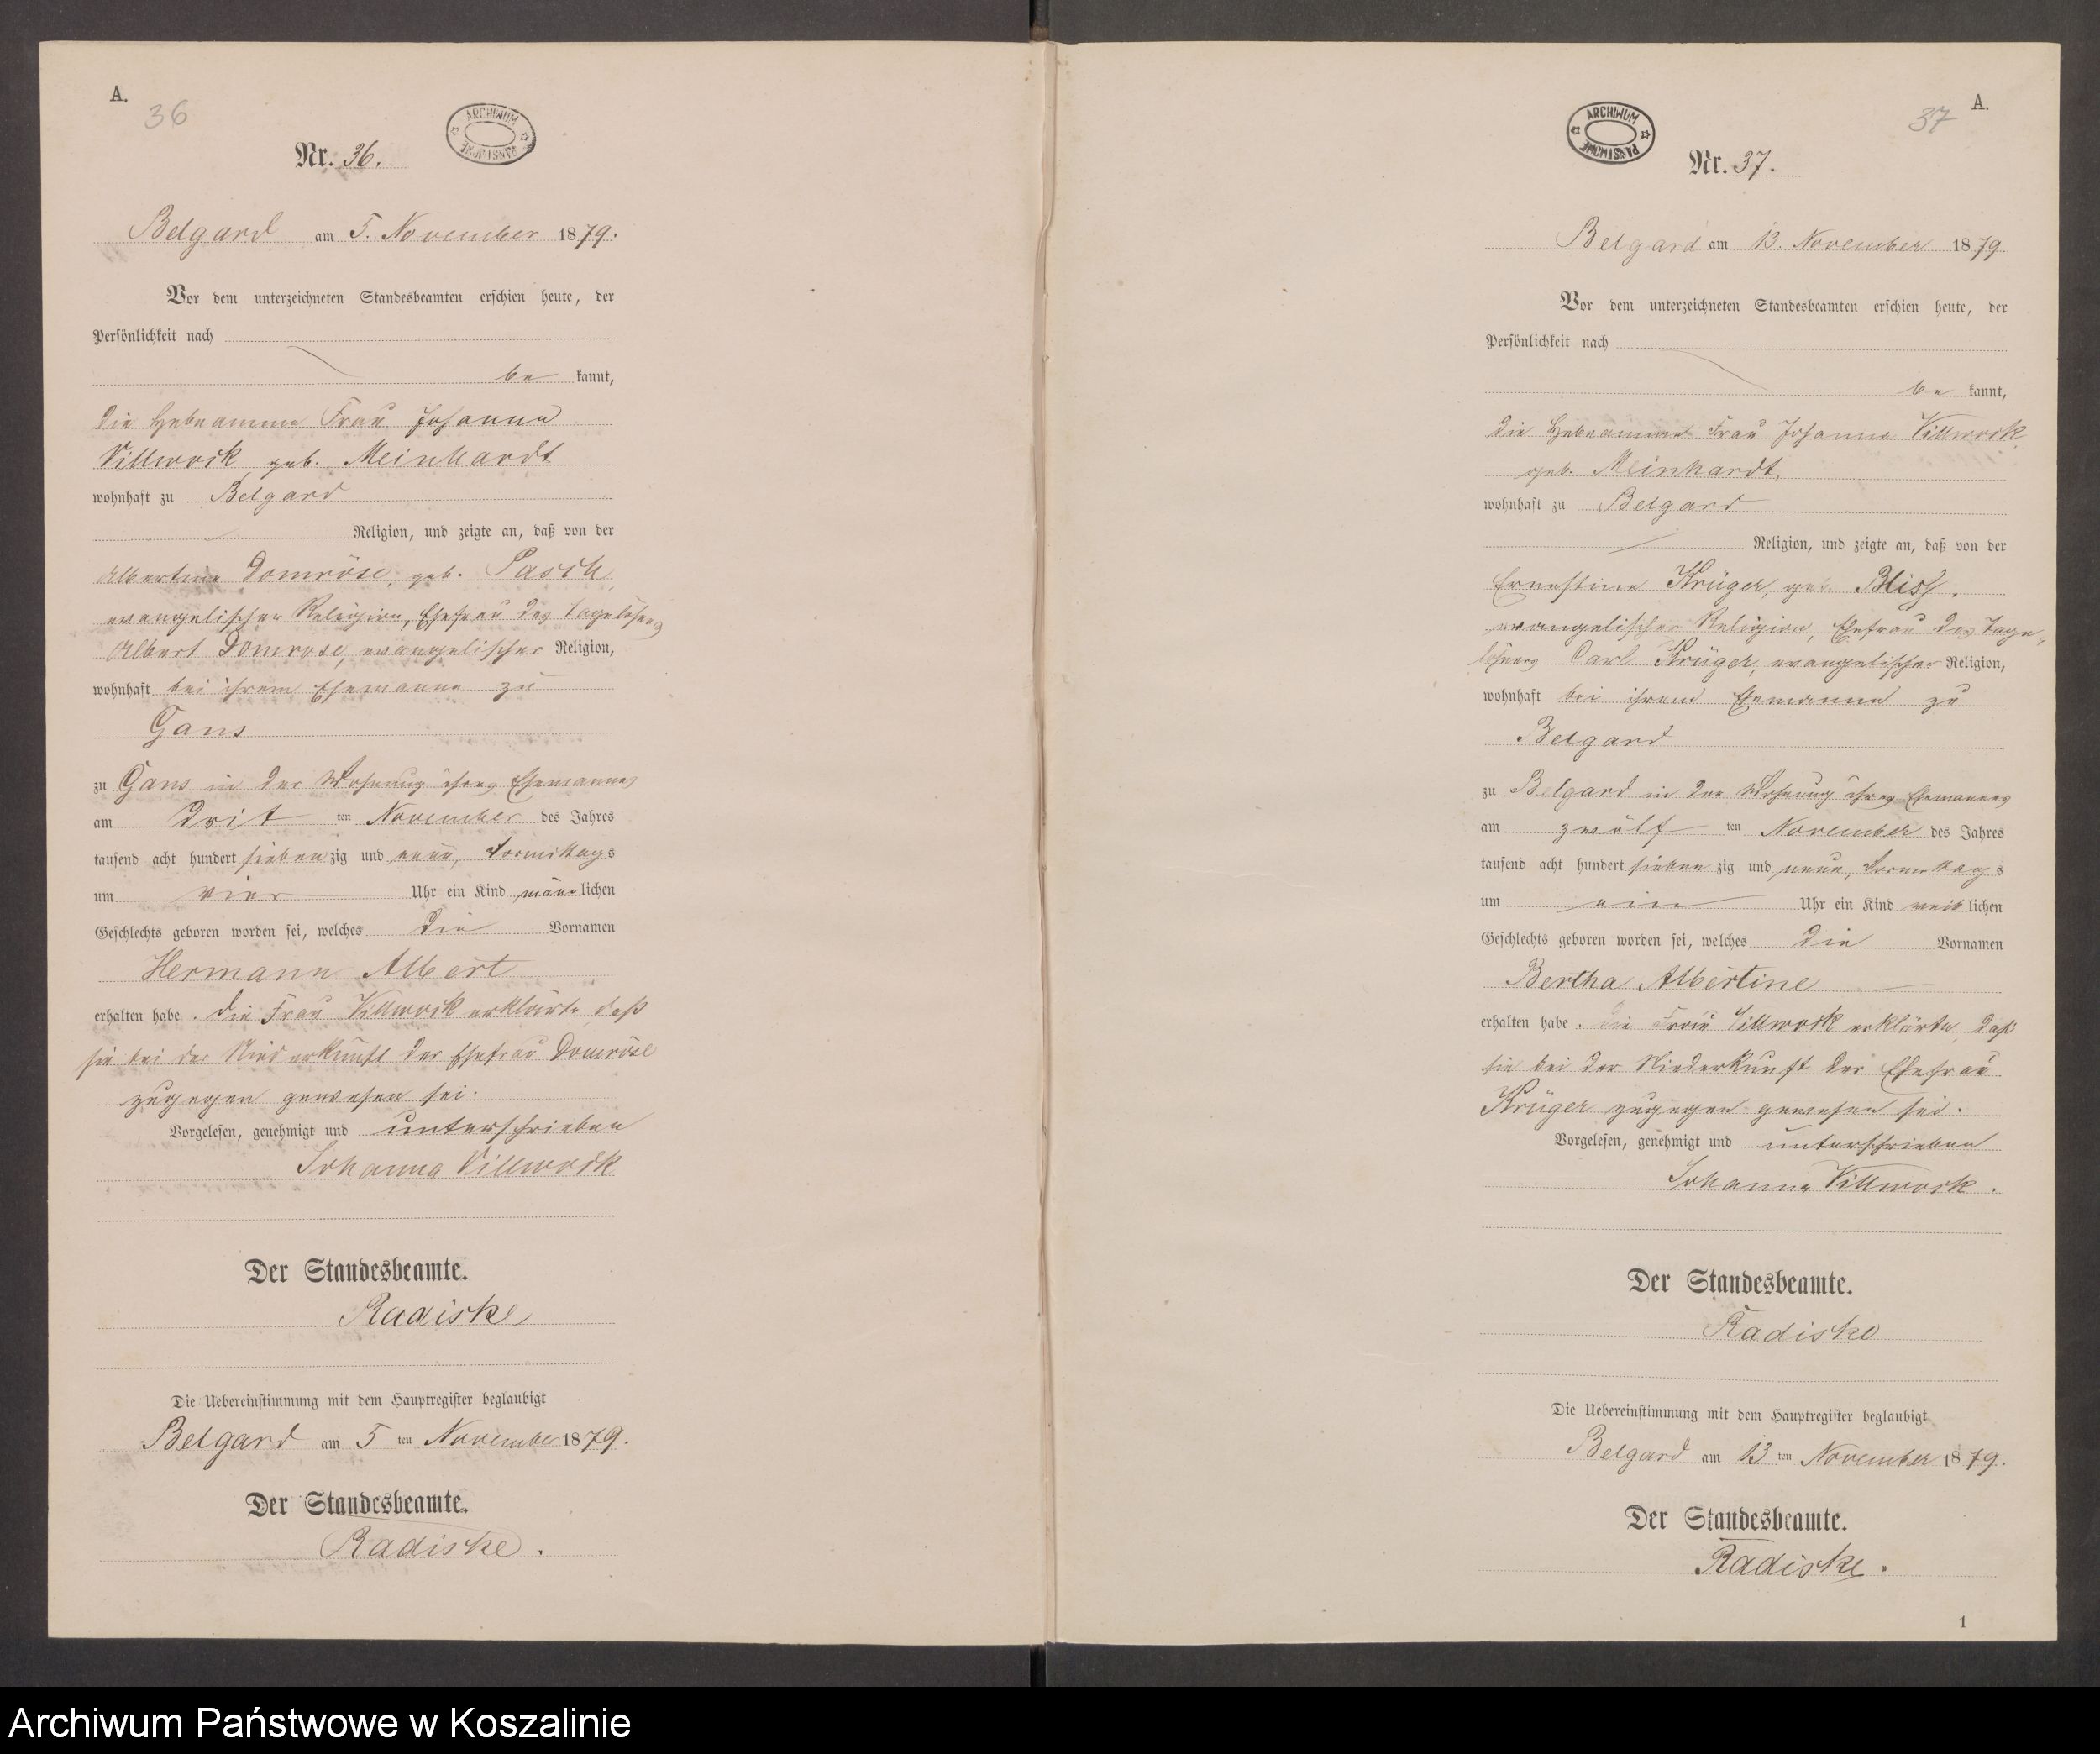 A.
36
ARCHIWUM PAŃSTWOWE
Nr. 36.
Belgard am 5. November 1879.
Vor dem unterzeichneten Standesbeamten erschien heute, der
Persönlichkeit nach
be kannt,
die Hebeamme Frau Johanna
Villwock, geb. Meinhardt
wohnhaft zu Belgard
Religion, und zeigte an, daß von der
Albertine Domröse, geb. Pasch,
evangelischer Religion, Ehefrau des Tagelöhners
Albert Domröse, evangelischer Religion,
wohnhaft bei ihrem Ehemanne zu
Gans
zu Gans in der Wohnung ihres Ehemannes
am drit ten November des Jahres
tausend acht hundert sieben zig und neun, Vormittags
um vier Uhr ein Kind männ lichen
Geschlechts geboren worden sei, welches die Vornamen
Hermann Albert
erhalten habe. die Frau Villwock erklärte, daß
sie bei der Niederkunft der Ehefrau Domröse
zugegen gewesen sei.
Vorgelesen, genehmigt und unterschrieben
Johanna Villwock
Der Standesbeamte.
Radiske
Die Uebereinstimmung mit dem Hauptregister beglaubigt
Belgard am 5 ten November 1879.
Der Standesbeamte.
Radiske.
A.
37
ARCHIWUM PAŃSTWOWE
Nr. 37.
Belgard am 13. November 1879
Vor dem unterzeichneten Standesbeamten erschien heute, der
Persönlichkeit nach
be kannt,
die Hebeamme Frau Johanna Villwock
geb. Meinhardt,
wohnhaft zu Belgard
Religion, und zeigte an, daß von der
Ernestine Krüger, geb. Bliss.
evangelischer Religion, Ehefrau des Tage-
löhners Carl Krüger, evangelischer Religion,
wohnhaft bei ihrem Ehemanne zu
Belgard
zu Belgard in der Wohnung ihres Ehemannes
am zwölf ten November des Jahres
tausend acht hundert sieben zig und neun, Vormittags
um ein Uhr ein Kind weib lichen
Geschlechts geboren worden sei, welches die Vornamen
Bertha Albertine
erhalten habe. die Frau Villwock erklärte, daß
sie bei der Niederkunft der Ehefrau
Krüger zugegen gewesen sei.
Vorgelesen, genehmigt und unterschrieben
Johanna Villwock.
Der Standesbeamte.
Radiske
Die Uebereinstimmung mit dem Hauptregister beglaubigt
Belgard am 13 ten November 1879.
Der Standesbeamte.
Radiske.
1
Archiwum Państwowe w Koszalinie